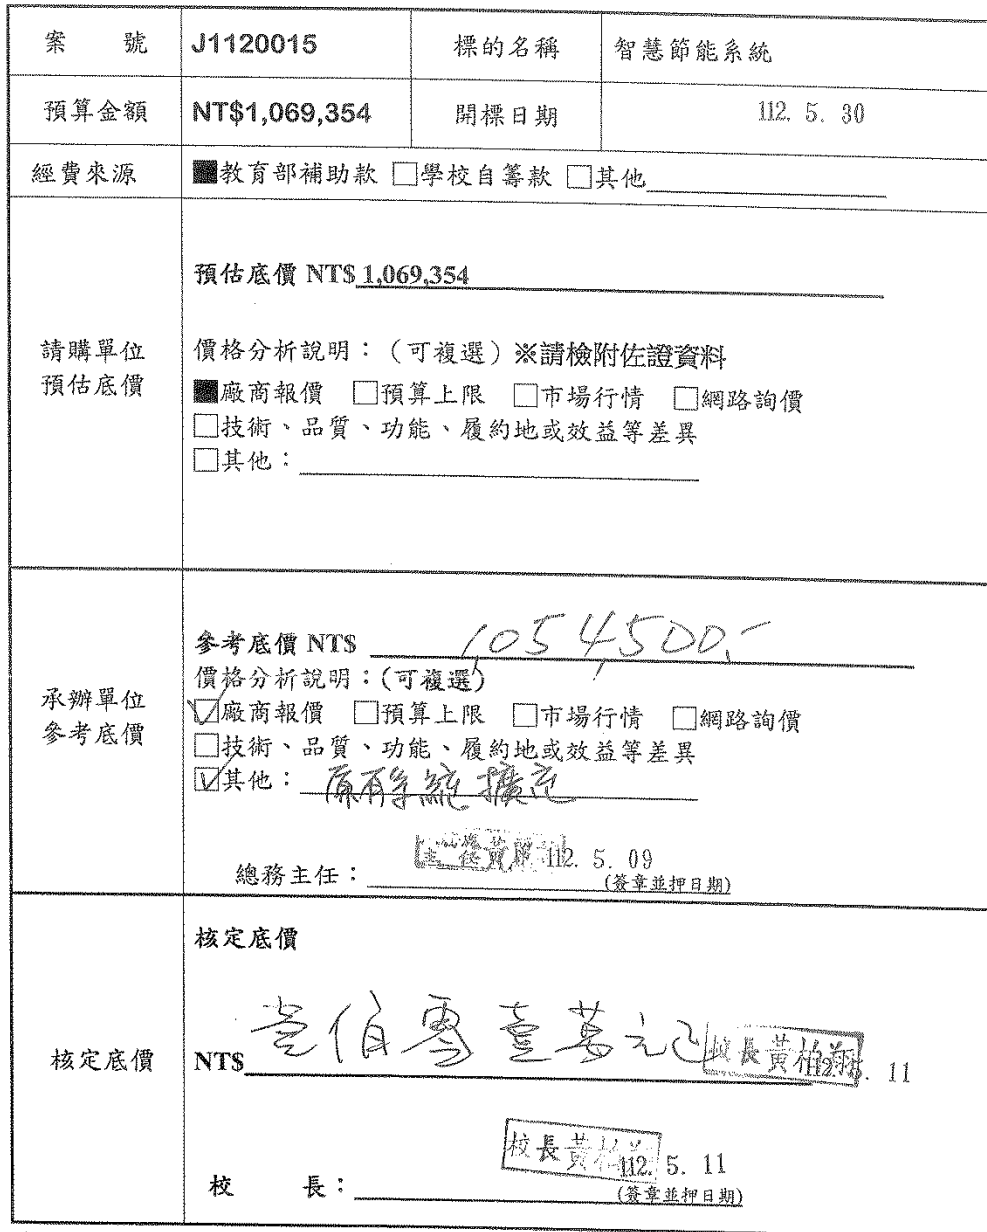 案 號 J1120015 標的名稱 智慧節能系統
預算金額 NT$1,069,354 開標日期 112. 5. 30
經費來源 ■教育部補助款 □學校自籌款 □其他
請購單位
預估底價
預估底價 NT$ 1,069,354
價格分析說明：（可複選）※請檢附佐證資料
■廠商報價 □預算上限 □市場行情 □網路詢價
□技術、品質、功能、履約地或效益等差異
□其他：
承辦單位
參考底價
參考底價 NT$ 1,054,500.-
價格分析說明：(可複選)
☑廠商報價 □預算上限 □市場行情 □網路詢價
□技術、品質、功能、履約地或效益等差異
☑其他： 原有系統擴充
總務主任： 主任黃 112. 5. 09
(簽章並押日期)
核定底價
核定底價
NT$ 壹佰零壹萬元正 校長黃柏翔 112. 5. 11
校 長： 校長黃柏 112. 5. 11
(簽章並押日期)